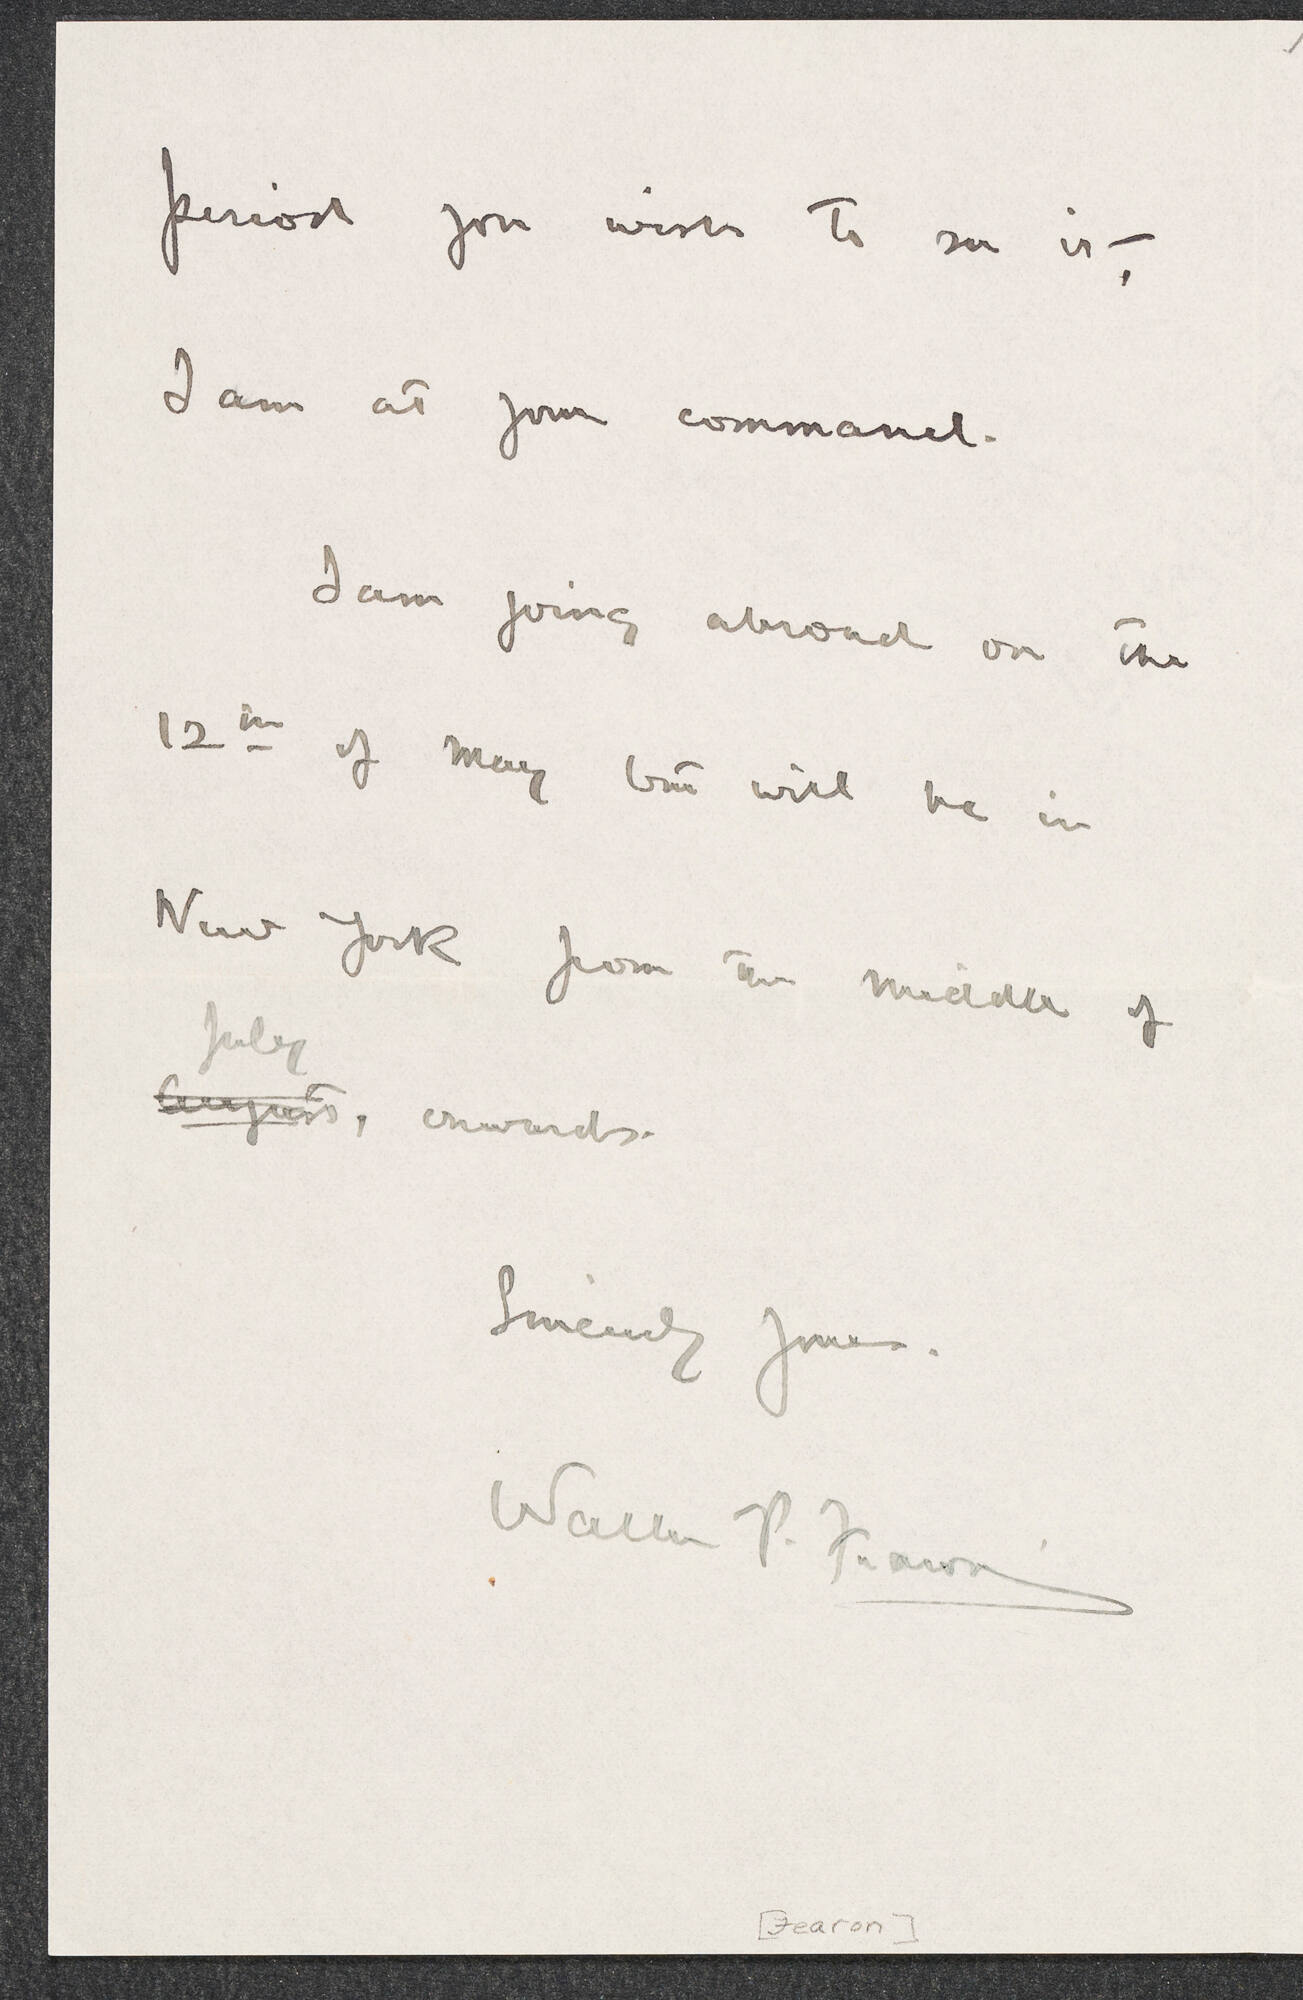 period you wish to see it,
I am at your command.
I am going abroad on the
12th of May but will be in
New York from the middle of
July
August, onwards.
Sincerely yours.
Walter P. Fearon
[Fearon]